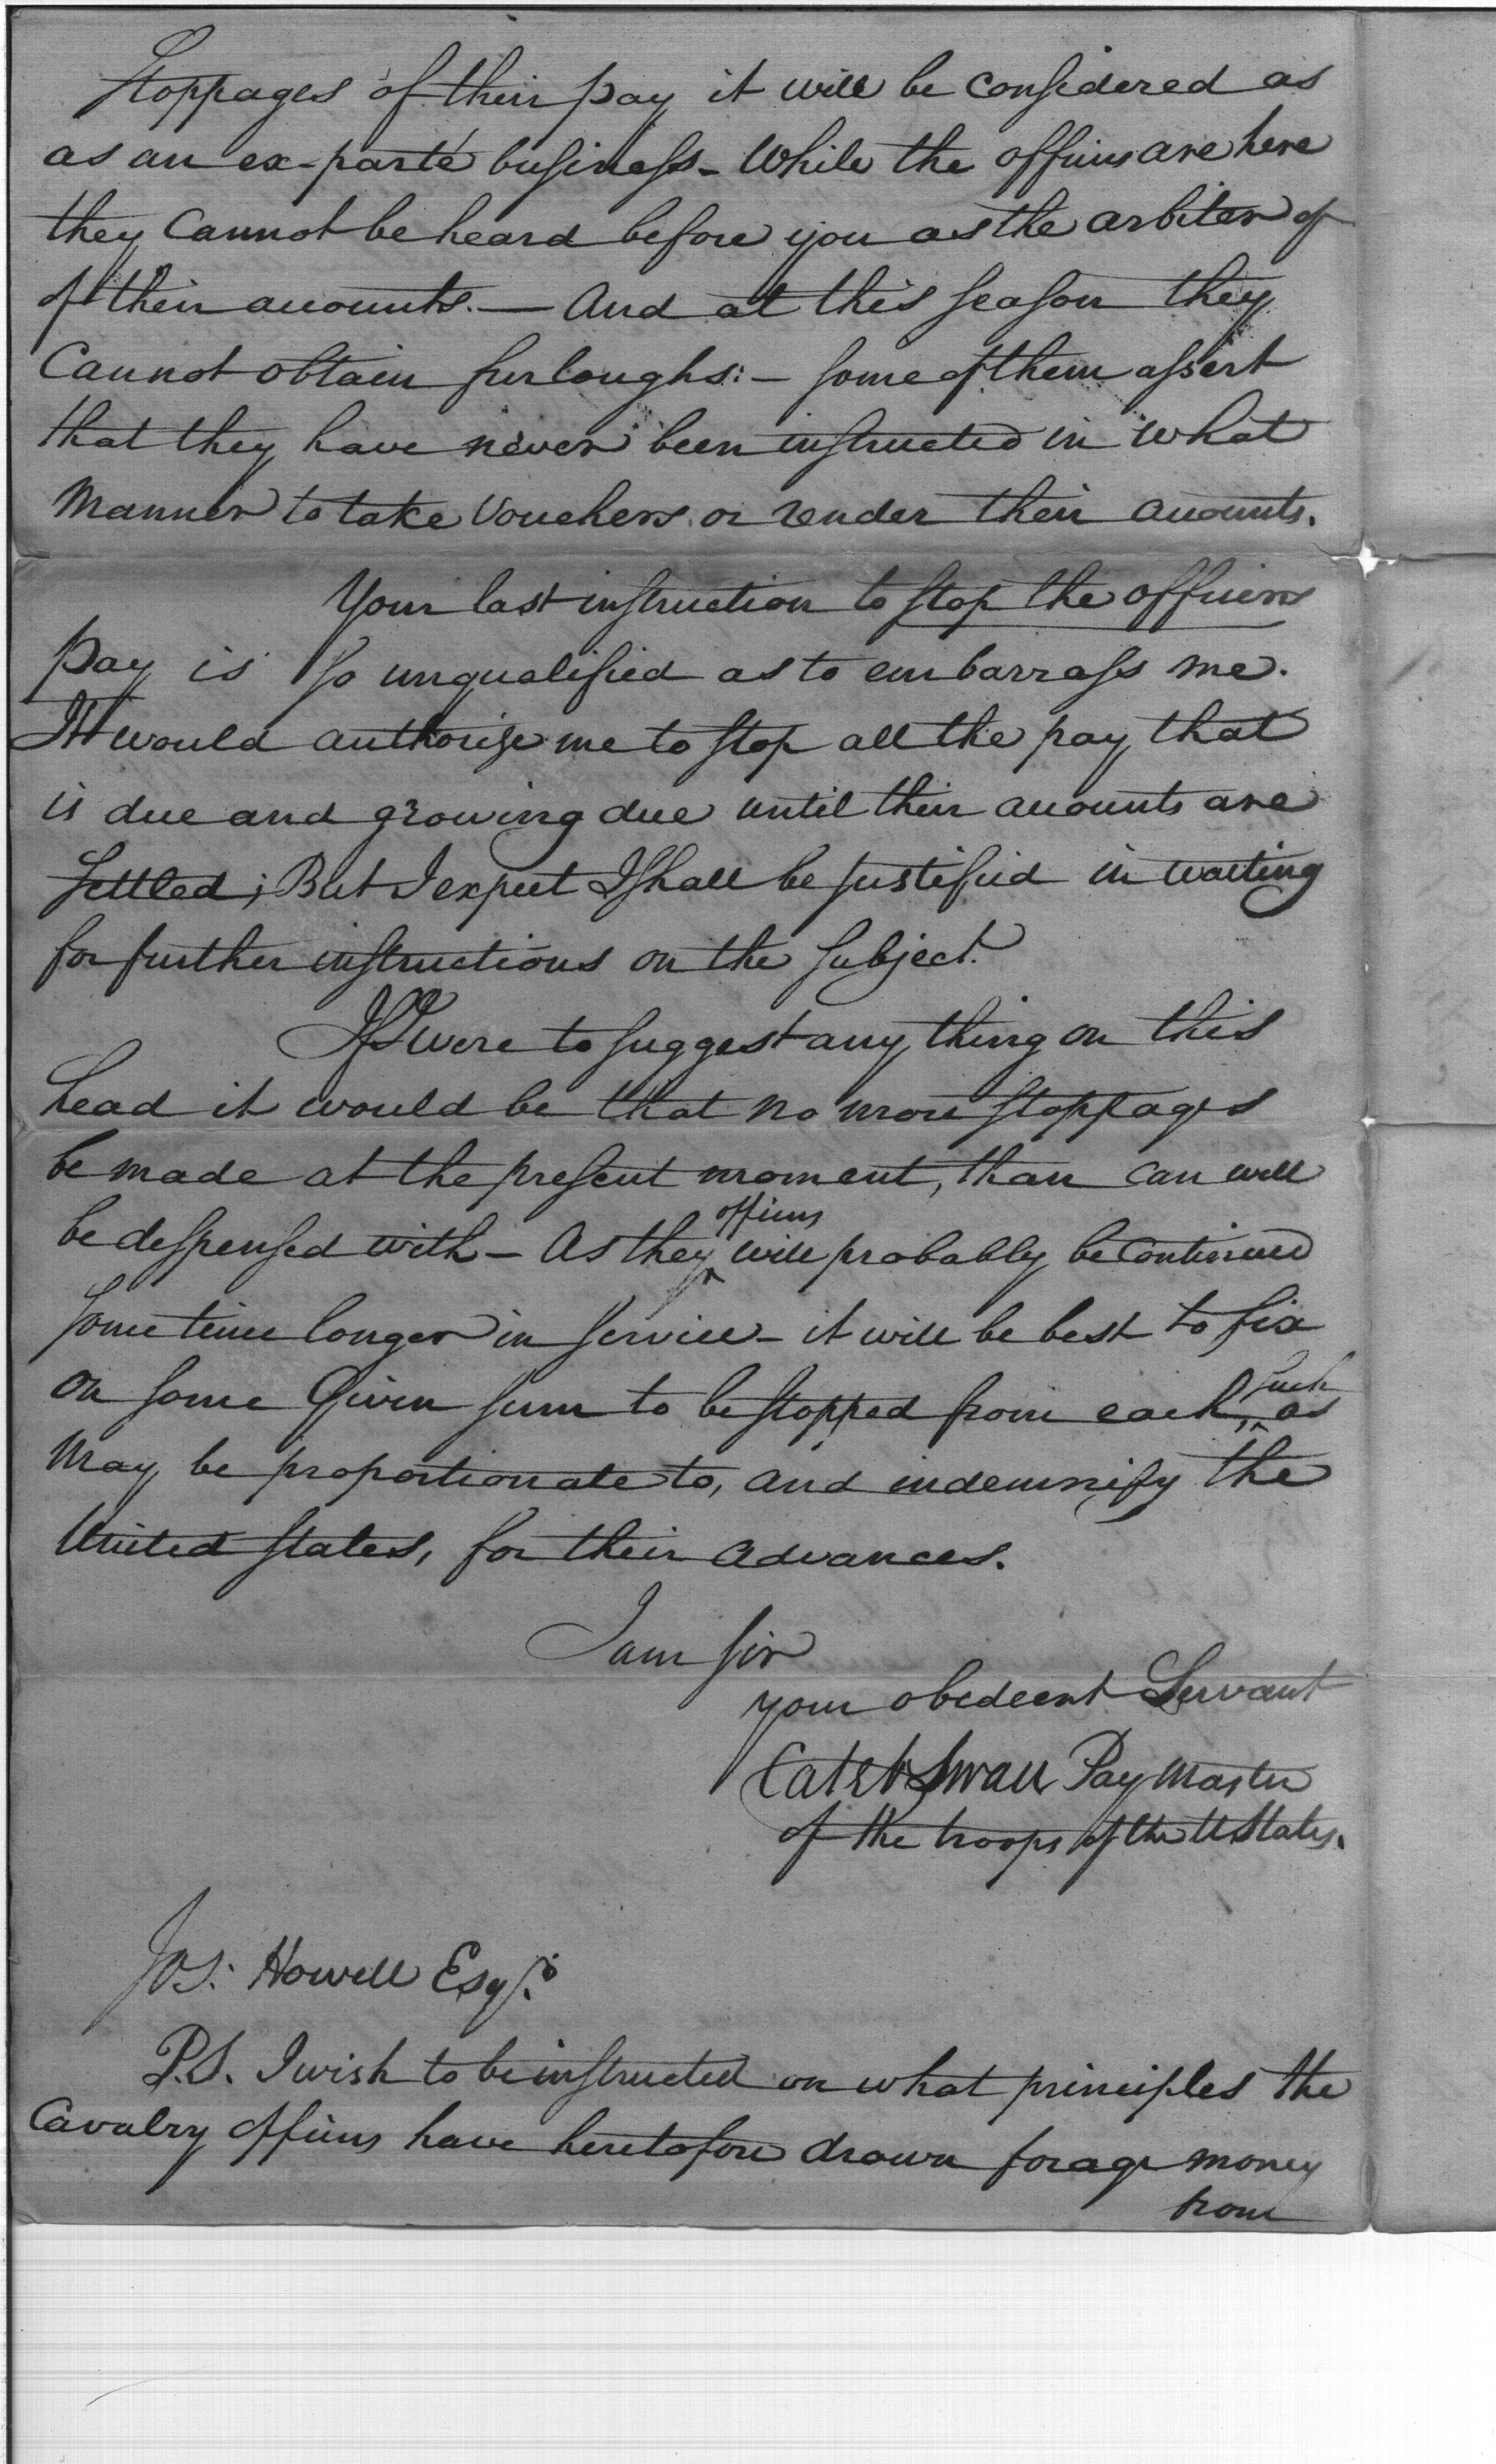 Stoppages of their pay it will be considered as
as an ex-parté business - While the officers are here
they Cannot be heard before you as the arbiter of
of their accounts. — And at this season they
Cannot obtain furloughs: - some of them assert
that they have never been instructed in what
Manner to take Vouchers or render their accounts.
Your last instruction to stop the officers
Pay is so unqualified as to embarrass me.
It would authorise me to stop all the pay that
is due and growing due until their accounts are
Settled; But I expect I shall be justified in waiting
for further instructions on the subject.
If I were to suggest any thing on this
head it would be that no more stoppages
be made at the present moment, than can well
officers
be despensed with - As they ^ will probably be Continued
some time longer in service - it will be best to fix
such
on some Given sum to be stopped from each, ^ as
May be proportionate to, and indemnify the
United States, for their advances.
I am sir
your obedeent Servant
Caleb Swan PayMaster
of the troops of the UStates.
Jos: Howell Esqr.
P.S. I wish to be instructed on what principles the
Cavalry officers have heretofore drawn forage money
from